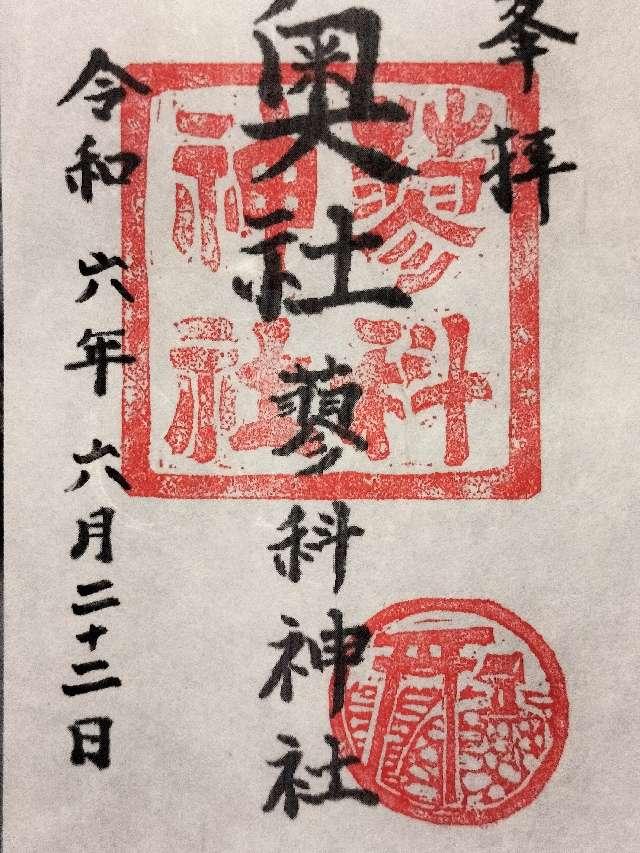 拝
奥社 蓼科神社
令和六年六月二十二日
蓼科
神社